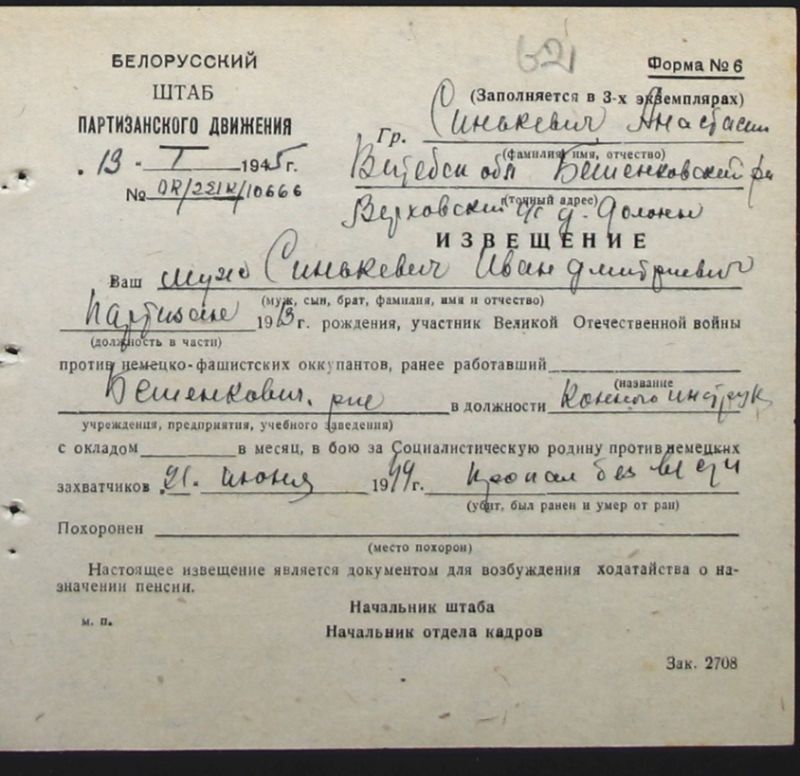 621
БЕЛОРУССКИЙ
ШТАБ
ПАРТИЗАНСКОГО ДВИЖЕНИЯ
13 - I 1945 г.
№
Форма № 6
(Заполняется в 3-х экземплярах)
Гр. Синькевич Анастасии
(фамилия, имя, отчество)
Витебск обл Бешенковский
(точный адрес)
Верховский с/с д.
ИЗВЕЩЕНИЕ
Ваш муж Синькевич Иван Дмитриевич
(муж, сын, брат, фамилия, имя и отчество)
партизан 1913 г. рождения, участник Великой Отечественной войны
(должность в части)
против немецко-фашистских оккупантов, ранее работавший
(название
Бешенкович. в должности
учреждения, предприятия, учебного заведения)
с окладом в месяц, в бою за Социалистическую родину против немецких
захватчиков 21. июня 1944 г. пропал без вести
(убит, был ранен и умер от ран)
Похоронен
(место похорон)
Настоящее извещение является документом для возбуждения ходатайства о на-
значении пенсии.
Начальник штаба
м. п.
Начальник отдела кадров
Зак. 2708